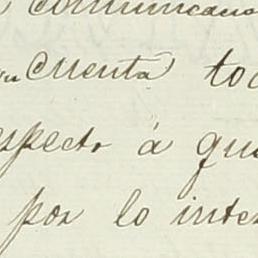 comunicacio
en cuenta to
especto á que
por lo inter